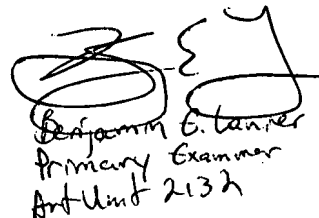 Benjamin E. Lanier
Primary Examiner
Art Unit 2132